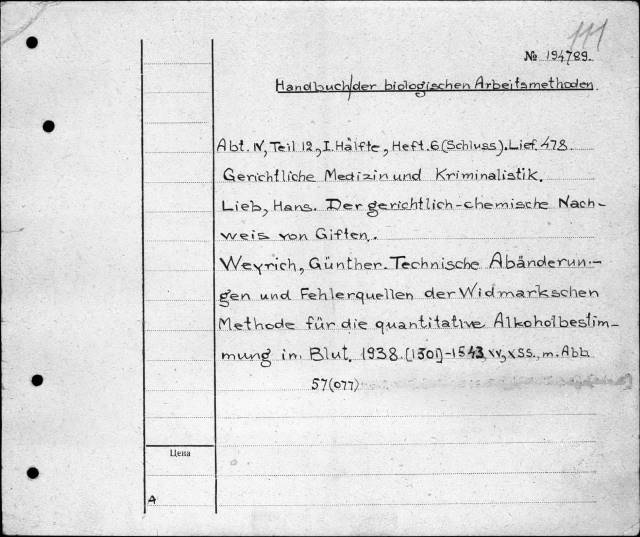 111
№ 194789.
Handbuch der biologischen Arbeitsmethoden.
Abt. IV, Teil 12, I. Hälfte, Heft. 6 (Schluss). Lief. 478.
Gerichtliche Medizin und Kriminalistik.
Lieb, Hans. Der gerichtlich-chemische Nach-
weis von Giften.
Weyrich, Günther. Technische Abänderun-
gen und Fehlerquellen der Widmarkschen
Methode für die quantitative Alkoholbestim-
mung in Blut. 1938. [1301]-1543, XV, X SS., m. Abb.
57(077)
Цена
A